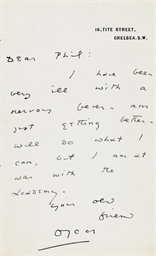 16, TITE STREET,
CHELSEA. S.W.
Dear Phil:
I have been
very ill with a
nervous fever - am
just getting better -
will do what I
can, but I am at
war with the
Academy.
Your old
friend
Oscar